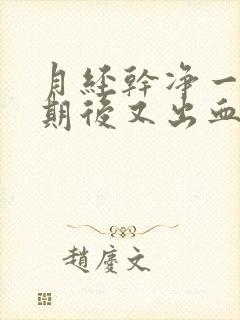 月経幹净一
期後又出血
趙慶文